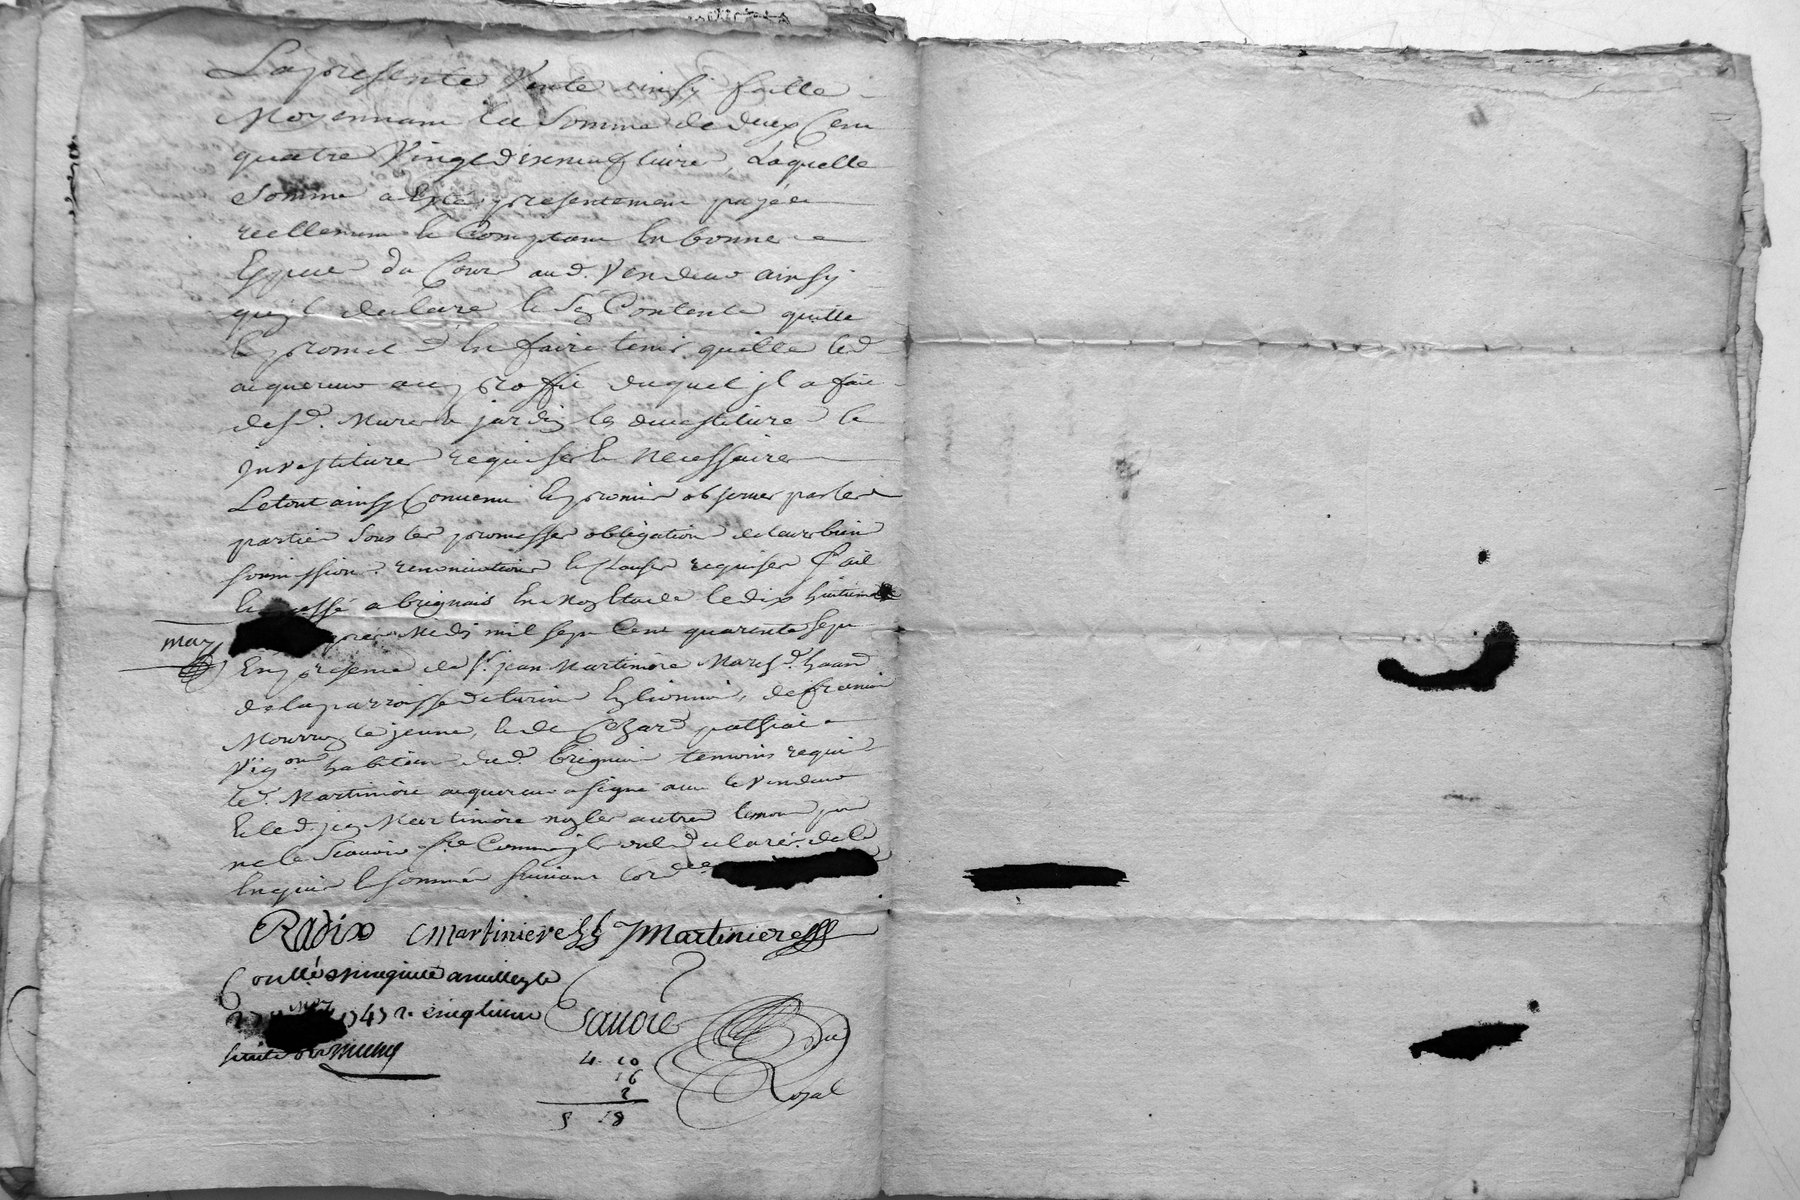 La presente Vente ainsy faitte
Moyennant la Somme de deux Cent
quatre Vingt dixneuf livres, Laquelle
Somme a Esté presentement payée
reellement & Comptant En bonne
Espece du Cours aud. Vendeur ainsy
quil declare & sen Contente quitte
& promet d'En faire tenir quitte led
acquereur au proffit duquel jl a fait
desd. Mure & jardin les devestiture &
jnvestiture requises & Necessaires
Le tout ainsy Convenu & promis observer par les
parties Sous les promesses obligation de leurs biens
soumissions renonciations & Clauses requises fait
& passé a brignais En No. Etude le dix huitieme
may
apres Midy mil sept Cent quarente sept
En presence de sr. jean Martiniere March.d
de la parroisse de turin En lionnois, de
le jeune, & de Cezard
Vig.on habitans dud. brignais temoins requis
led. Martiniere acquereur a signé avec le Vendeur
& led. jean Martiniere non les autres temoins pour
ne le Scavoir f.re Comme jls ont declaré. de ce
Enquis & sommés suivant l'ord.ce
Radix Martiniere J Martiniere
Con.llé &
may 1747 R. cinq livres
Savoie
4 10
16
2
5 18
Royal